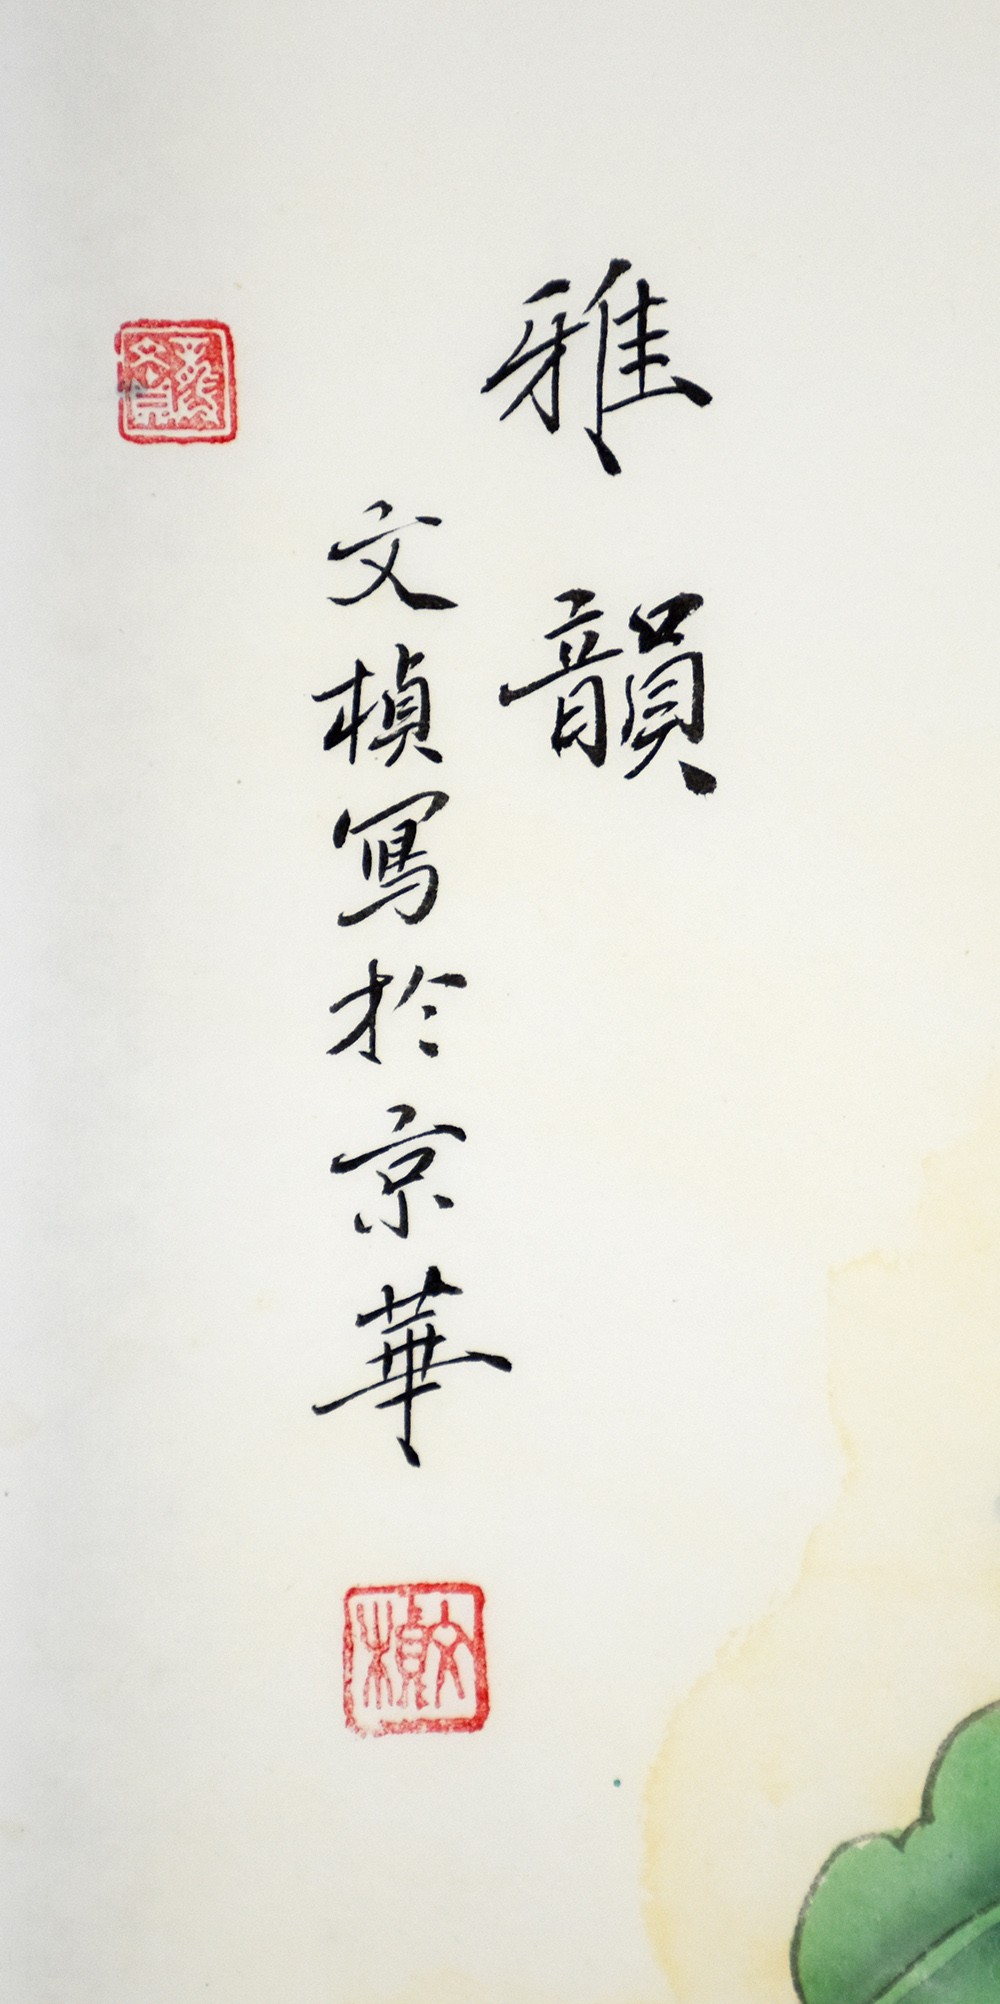 雅韻
文楨寫於京華
文楨